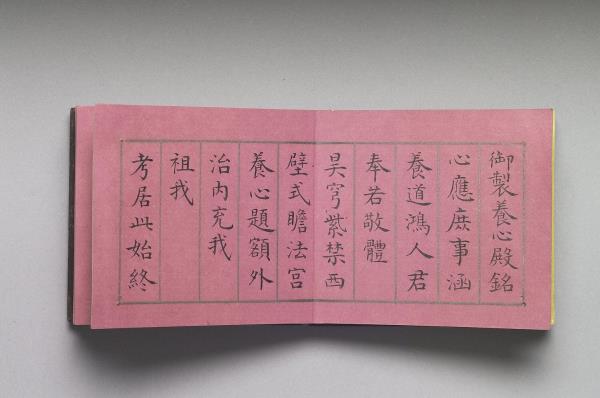 御製養心殿銘
心應庶事涵
養道鴻人君
奉若敬體
昊穹紫禁西
壁式瞻法宮
養心題額外
治內充我
祖我
考居此始終